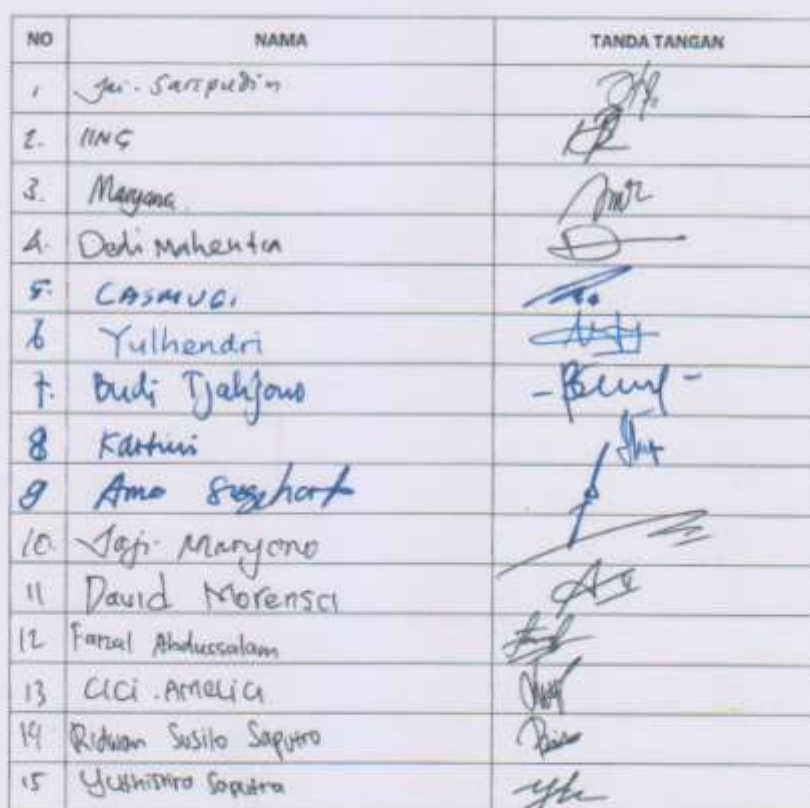 NO NAMA TANDA TANGAN
1 Jai. Saripudin
2. IING
3. Maryana.
4. Dedi Mahentra
5. CASMUGI
6 Yulhendri
7. Budi Tjahjono
8 Kartini
9 Amo Sugiharto
10. Jaji. Maryono
11 David Morensci
12 Farzal Abdussalam
13 CiCi . AMeLiCi
14 Ridwan Susilo Saputro
15 Saputra